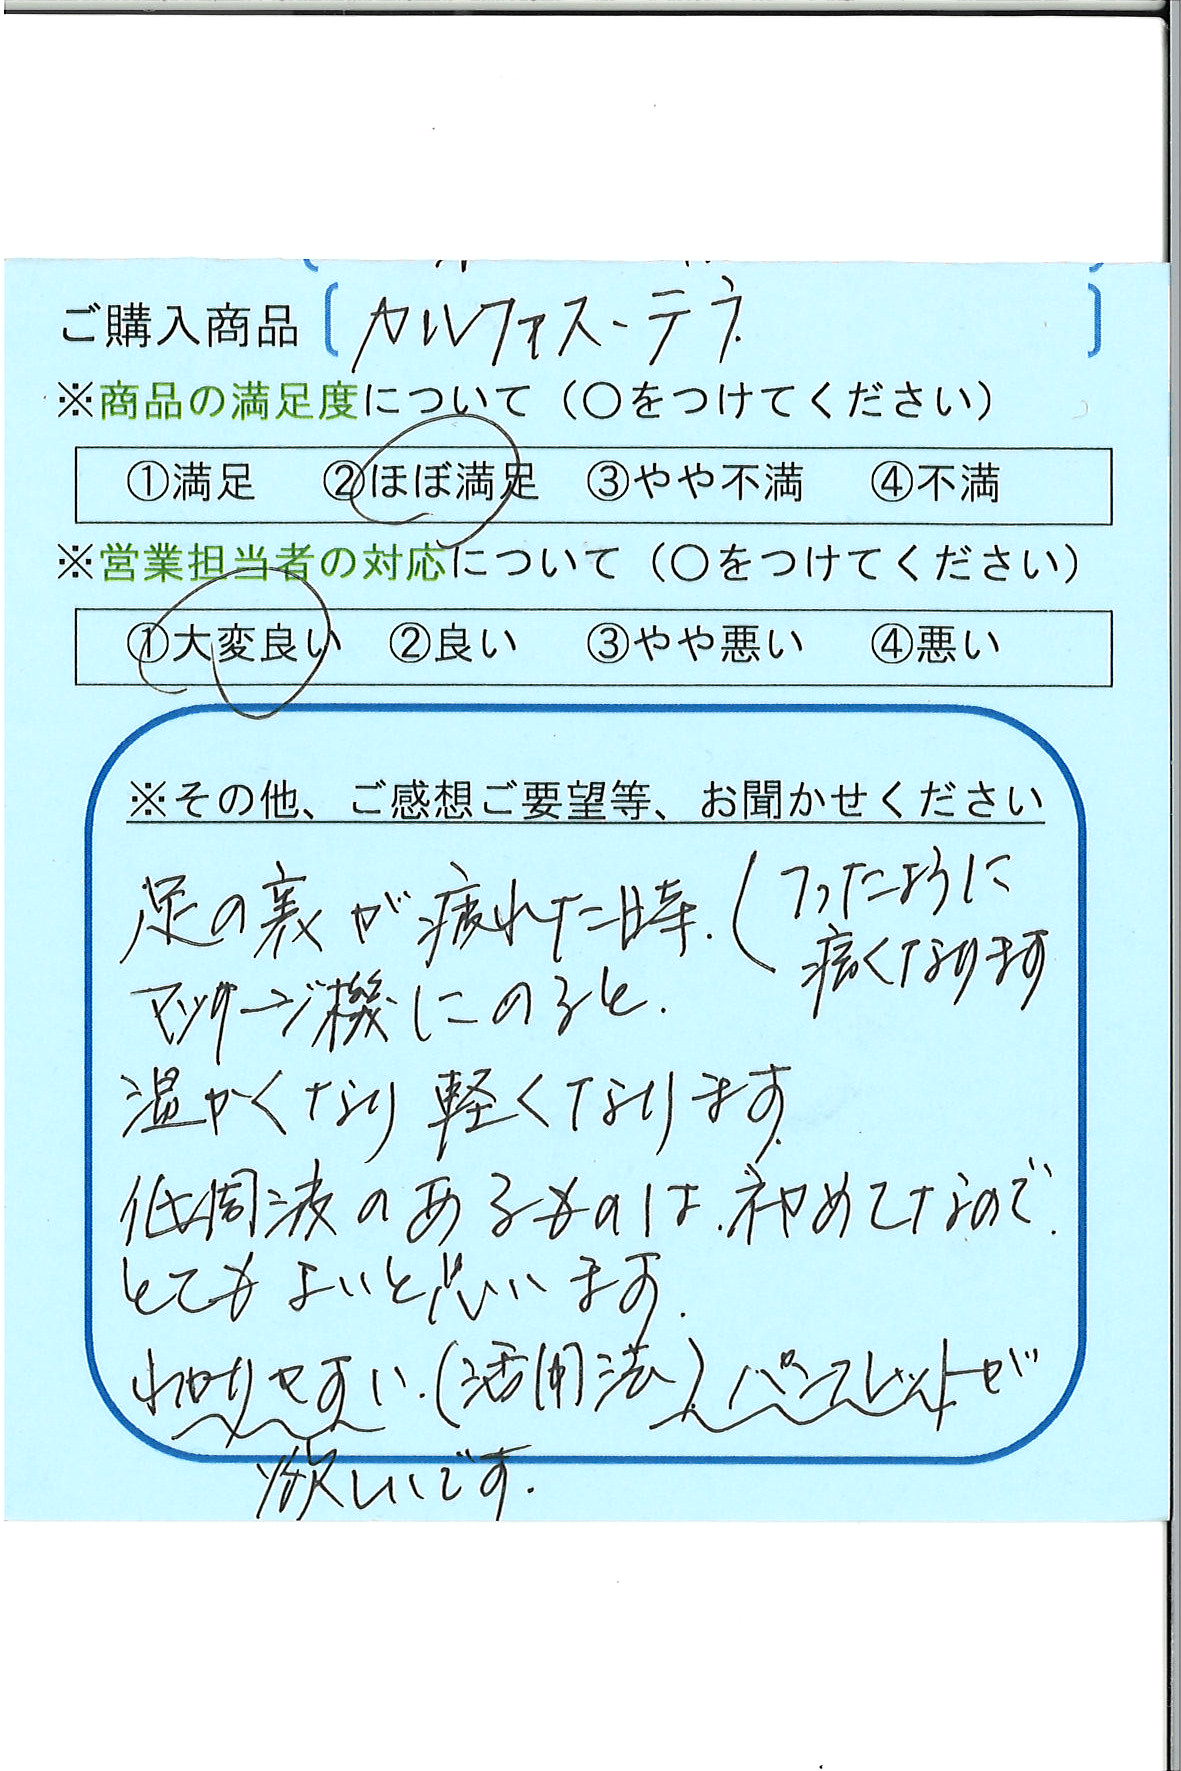 ご購入商品 カルフォス・テネ
※商品の満足度について（○をつけてください）
①満足 ②ほぼ満足 ③やや不満 ④不満
※営業担当者の対応について（○をつけてください）
①大変良い ②良い ③やや悪い ④悪い
※その他、ご感想ご要望等、お聞かせください
足の裏が疲れた時、(つったように
痛くなります
マッサージ機にのると、
温かくなり軽くなります。
低周波のあるものは、初めてなので、
とてもよいと思います。
わかりやすい、(活用法)パンフレットが
欲しいです。